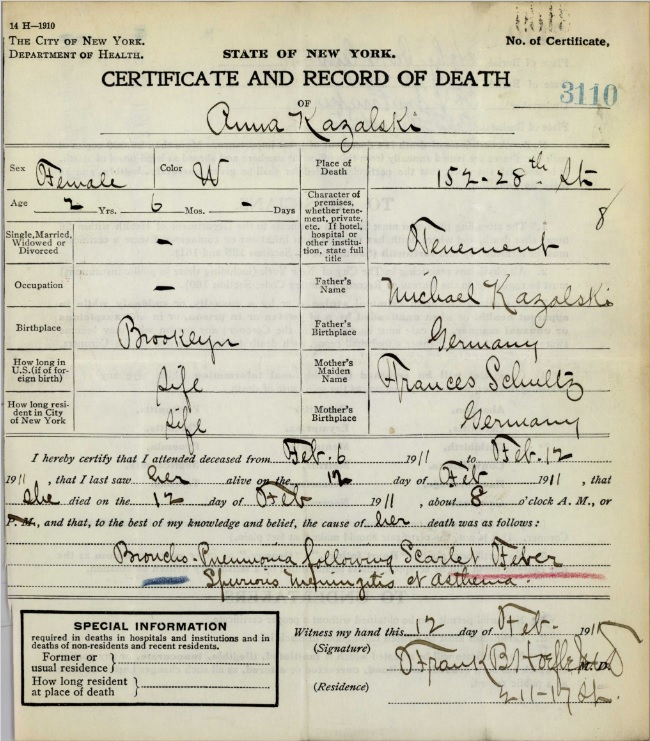 14 H—1910
The City of New York.
Department of Health.
STATE OF NEW YORK.
No. of Certificate,
CERTIFICATE AND RECORD OF DEATH
3110
OF
Anna Kazalski
Sex Female Color W Place of Death 152-28th St
Age 2 Yrs. 6 Mos. - Days
8
Character of premises, whether tenement, private, etc. If hotel, hospital or other institution, state full title Tenement
Single, Married, Widowed or Divorced -
Occupation - Father's Name Michael Kazalski
Birthplace Brooklyn Father's Birthplace Germany
How long in U.S. (if of foreign birth) Life Mother's Maiden Name Frances Schultz
How long resident in City of New York Life Mother's Birthplace Germany
I hereby certify that I attended deceased from Feb. 6 1911 to Feb. 12
1911, that I last saw her alive on the 12 day of Feb 1911, that
she died on the 12 day of Feb 1911, about 8 o'clock A. M., or
P. M., and that, to the best of my knowledge and belief, the cause of her death was as follows:
Broncho-Pneumonia following Scarlet Fever
Spurious Meningitis et Asthenia.
SPECIAL INFORMATION
required in deaths in hospitals and institutions and in
deaths of non-residents and recent residents.
Former or usual residence }
How long resident at place of death }
Witness my hand this 12 day of Feb. 191
(Signature) Frank B. M. D.
(Residence) 211-17 St.